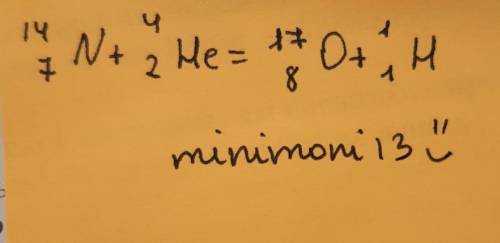 ¹⁴₇N + ⁴₂He = ¹⁷₈O + ¹₁H
minimoni13 ت